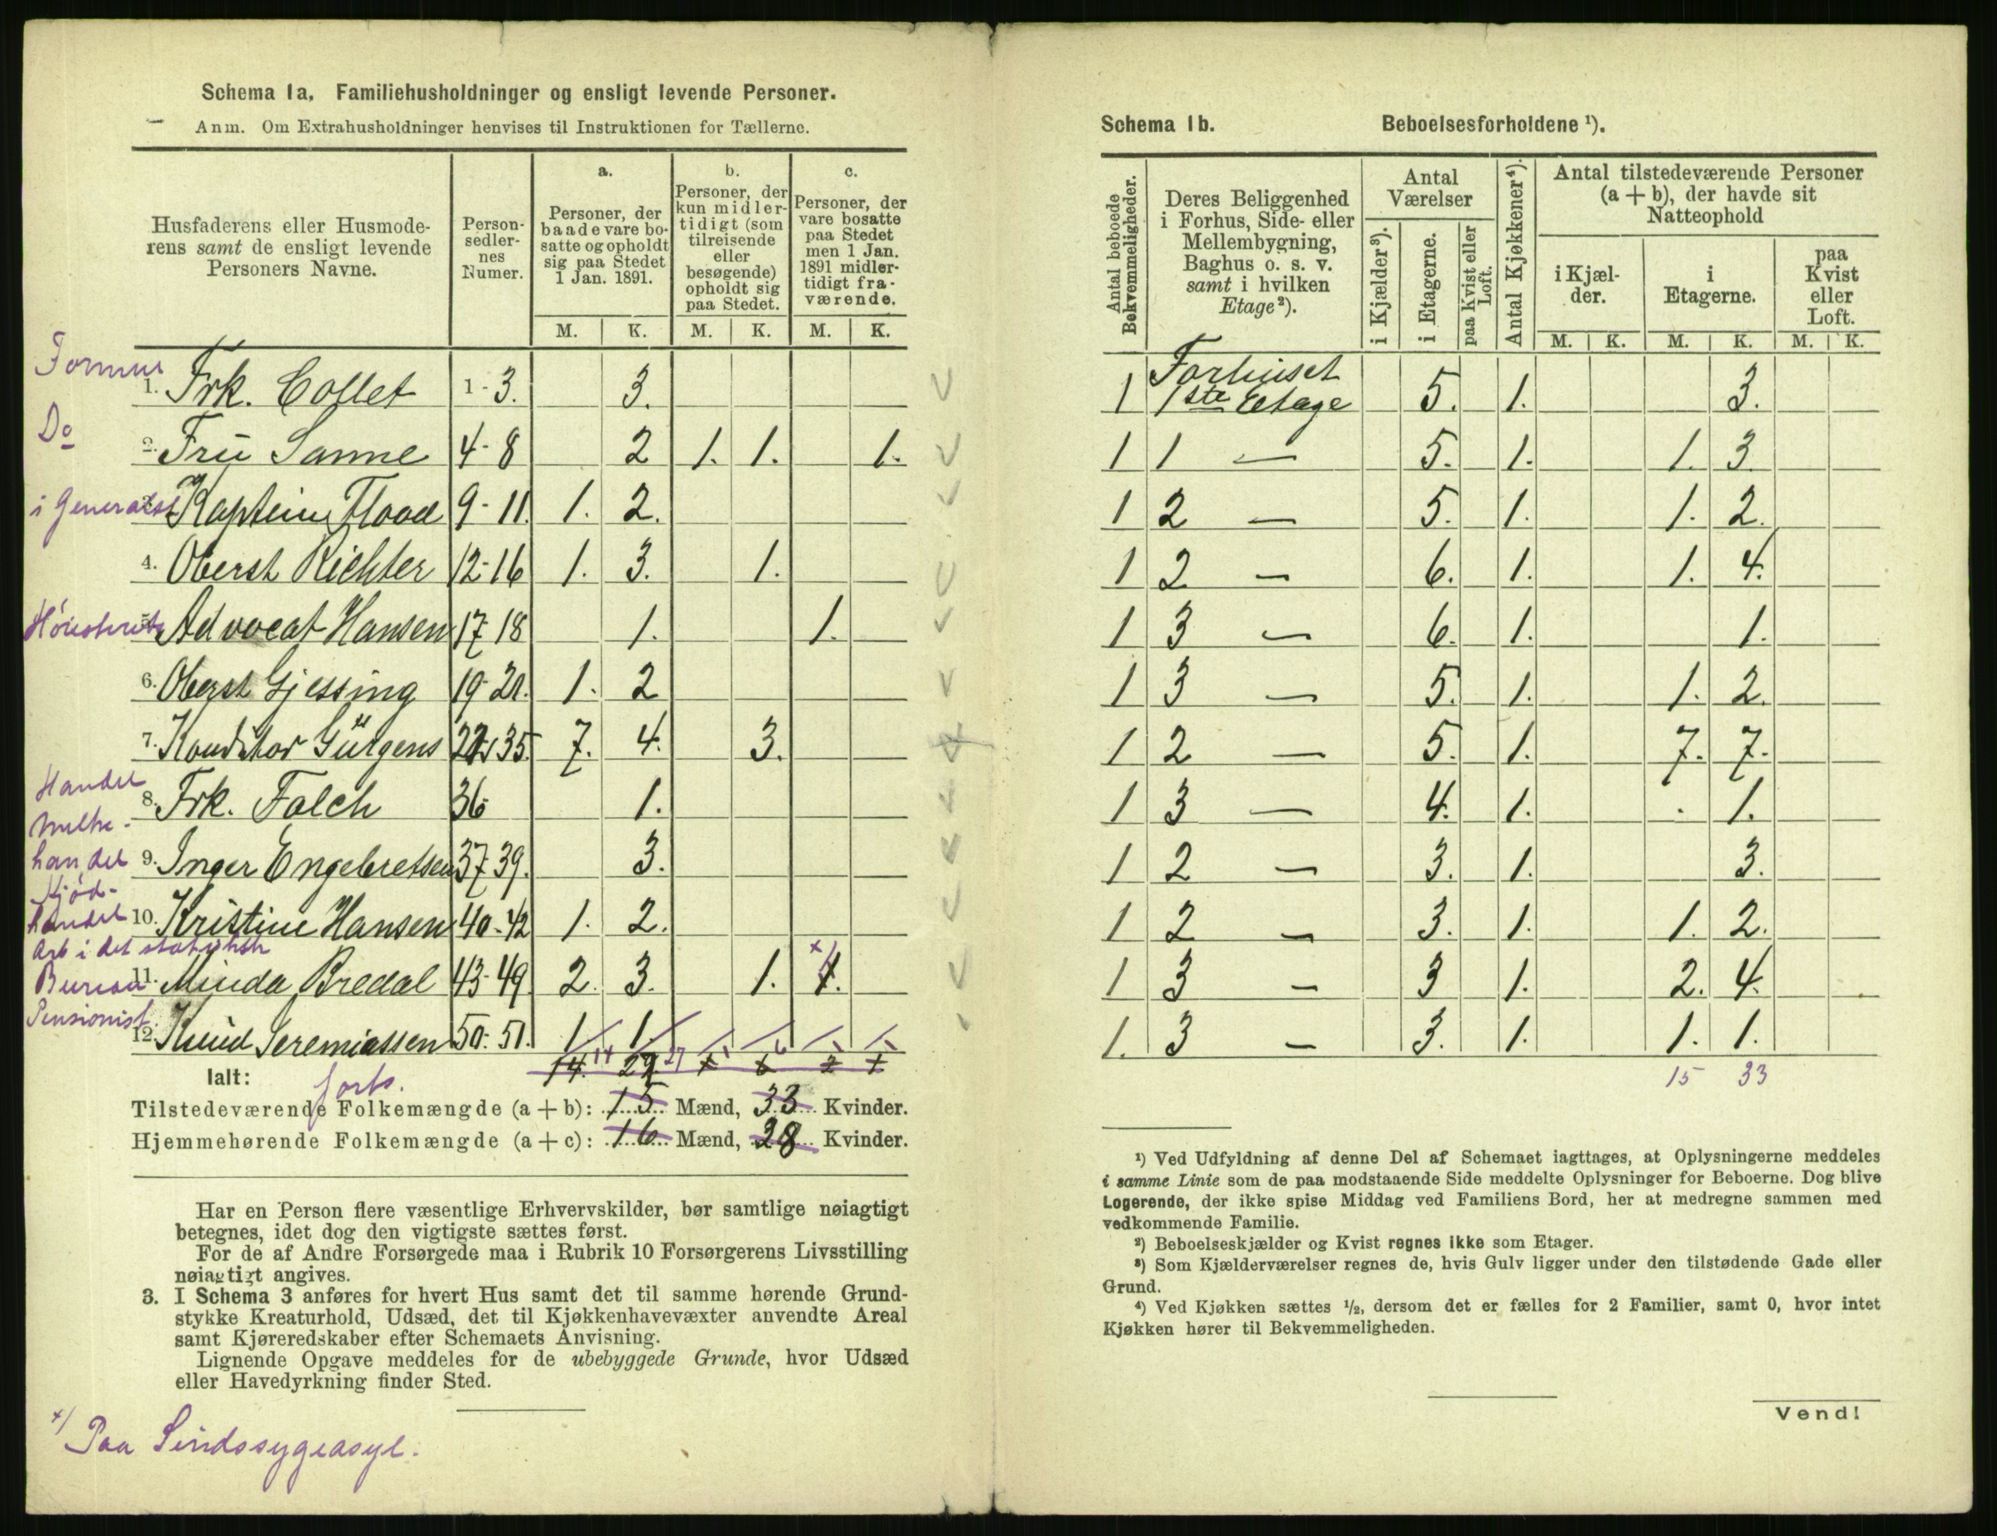 Schema 1a. Familiehusholdninger og ensligt levende Personer.
Anm. Om Extrahusholdninger henvises til Instruktionen for Tællerne.
Husfaderens eller Husmoderens samt de ensligt levende Personers Navne.
Person-sedler-nes Numer.
a. Personer, der baade vare bosatte og opholdt sig paa Stedet 1 Jan. 1891. M. K.
b. Personer, der kun midlertidigt (som tilreisende eller besøgende) opholdt sig paa Stedet. M. K.
c. Personer, der vare bosatte paa Stedet men 1 Jan. 1891 midlertidigt fraværende. M. K.
1. Frk. Collet 1-3. 3.
Do
2. Fru Sanne 4-8 2 1. 1. 1.
i Generalst
Kaptein Flood 9-11. 1. 2.
4. Oberst Richter 12-16 1. 3. 1.
Advocat Hansen 17-18 1. 1.
6. Oberst Gjessing 19-21. 1. 2
7. Konditor Gürgens 22-35 7. 4. 3.
Handel
8. Frk. Falch 36- 1.
handel
9. Inger Engebretsen 37-39. 3.
Kjød-
handel
10. Kristine Hansen 40-42 1. 2.
Arb i det statistiske
Bureau
11. Minda Bredal 43-49. 2. 3. 1. x 1.
Pensionist.
12. Knud Jeremiassen 50-51. 1 1.
Ialt: 14. 14 29 27 1 1 6 6 2 1
forts.
Tilstedeværende Folkemængde (a + b): 15 Mænd, 33 Kvinder.
Hjemmehørende Folkemængde (a + c): 16 Mænd, 28 Kvinder.
Har en Person flere væsentlige Erhvervskilder, bør samtlige nøiagtigt
betegnes, idet dog den vigtigste sættes først.
For de af Andre Forsørgede maa i Rubrik 10 Forsørgerens Livsstilling
nøiagtigt angives.
3. I Schema 3 anføres for hvert Hus samt det til samme hørende Grund-
stykke Kreaturhold, Udsæd, det til Kjøkkenhavevæxter anvendte Areal
samt Kjøreredskaber efter Schemaets Anvisning.
Lignende Opgave meddeles for de ubebyggede Grunde, hvor Udsæd
eller Havedyrkning finder Sted.
x) Paa Sindssygeasyl.
Schema 1b. Beboelsesforholdene ¹).
Antal beboede Bekvemmeligheder.
Deres Beliggenhed i Forhus, Side- eller Mellembygning, Baghus o. s. v. samt i hvilken Etage²).
Antal Værelser
i Kjælder³).
i Etagerne.
paa Kvist eller Loft.
Antal Kjøkkener⁴).
Antal tilstedeværende Personer (a + b), der havde sit Natteophold
i Kjælder. M. K.
i Etagerne. M. K.
paa Kvist eller Loft. M. K.
1 Forhuset 1ste Etage 5. 1. 3.
1 1 — 5. 1. 1. 3.
1 2 — 5. 1. 1. 2.
1 2 — 6. 1. 1. 4.
1 3 — 6. 1. 1.
1 3 — 5. 1. 1. 2.
1 2 — 5. 1. 7. 7.
1 3 — 4. 1. . 1.
1 2 — 3. 1. 3.
1 2 — 3. 1. 1. 2.
1 3 — 3 1. 2. 4.
1. 3 — 3. 1. 1. 1.
15 33
¹) Ved Udfyldning af denne Del af Schemaet iagttages, at Oplysningerne meddeles
i samme Linie som de paa modstaaende Side meddelte Oplysninger for Beboerne. Dog blive
Logerende, der ikke spise Middag ved Familiens Bord, her at medregne sammen med
vedkommende Familie.
²) Beboelseskjælder og Kvist regnes ikke som Etager.
³) Som Kjælderværelser regnes de, hvis Gulv ligger under den tilstødende Gade eller
Grund.
⁴) Ved Kjøkken sættes ½, dersom det er fælles for 2 Familier, samt 0, hvor intet
Kjøkken hører til Bekvemmeligheden.
Vend!